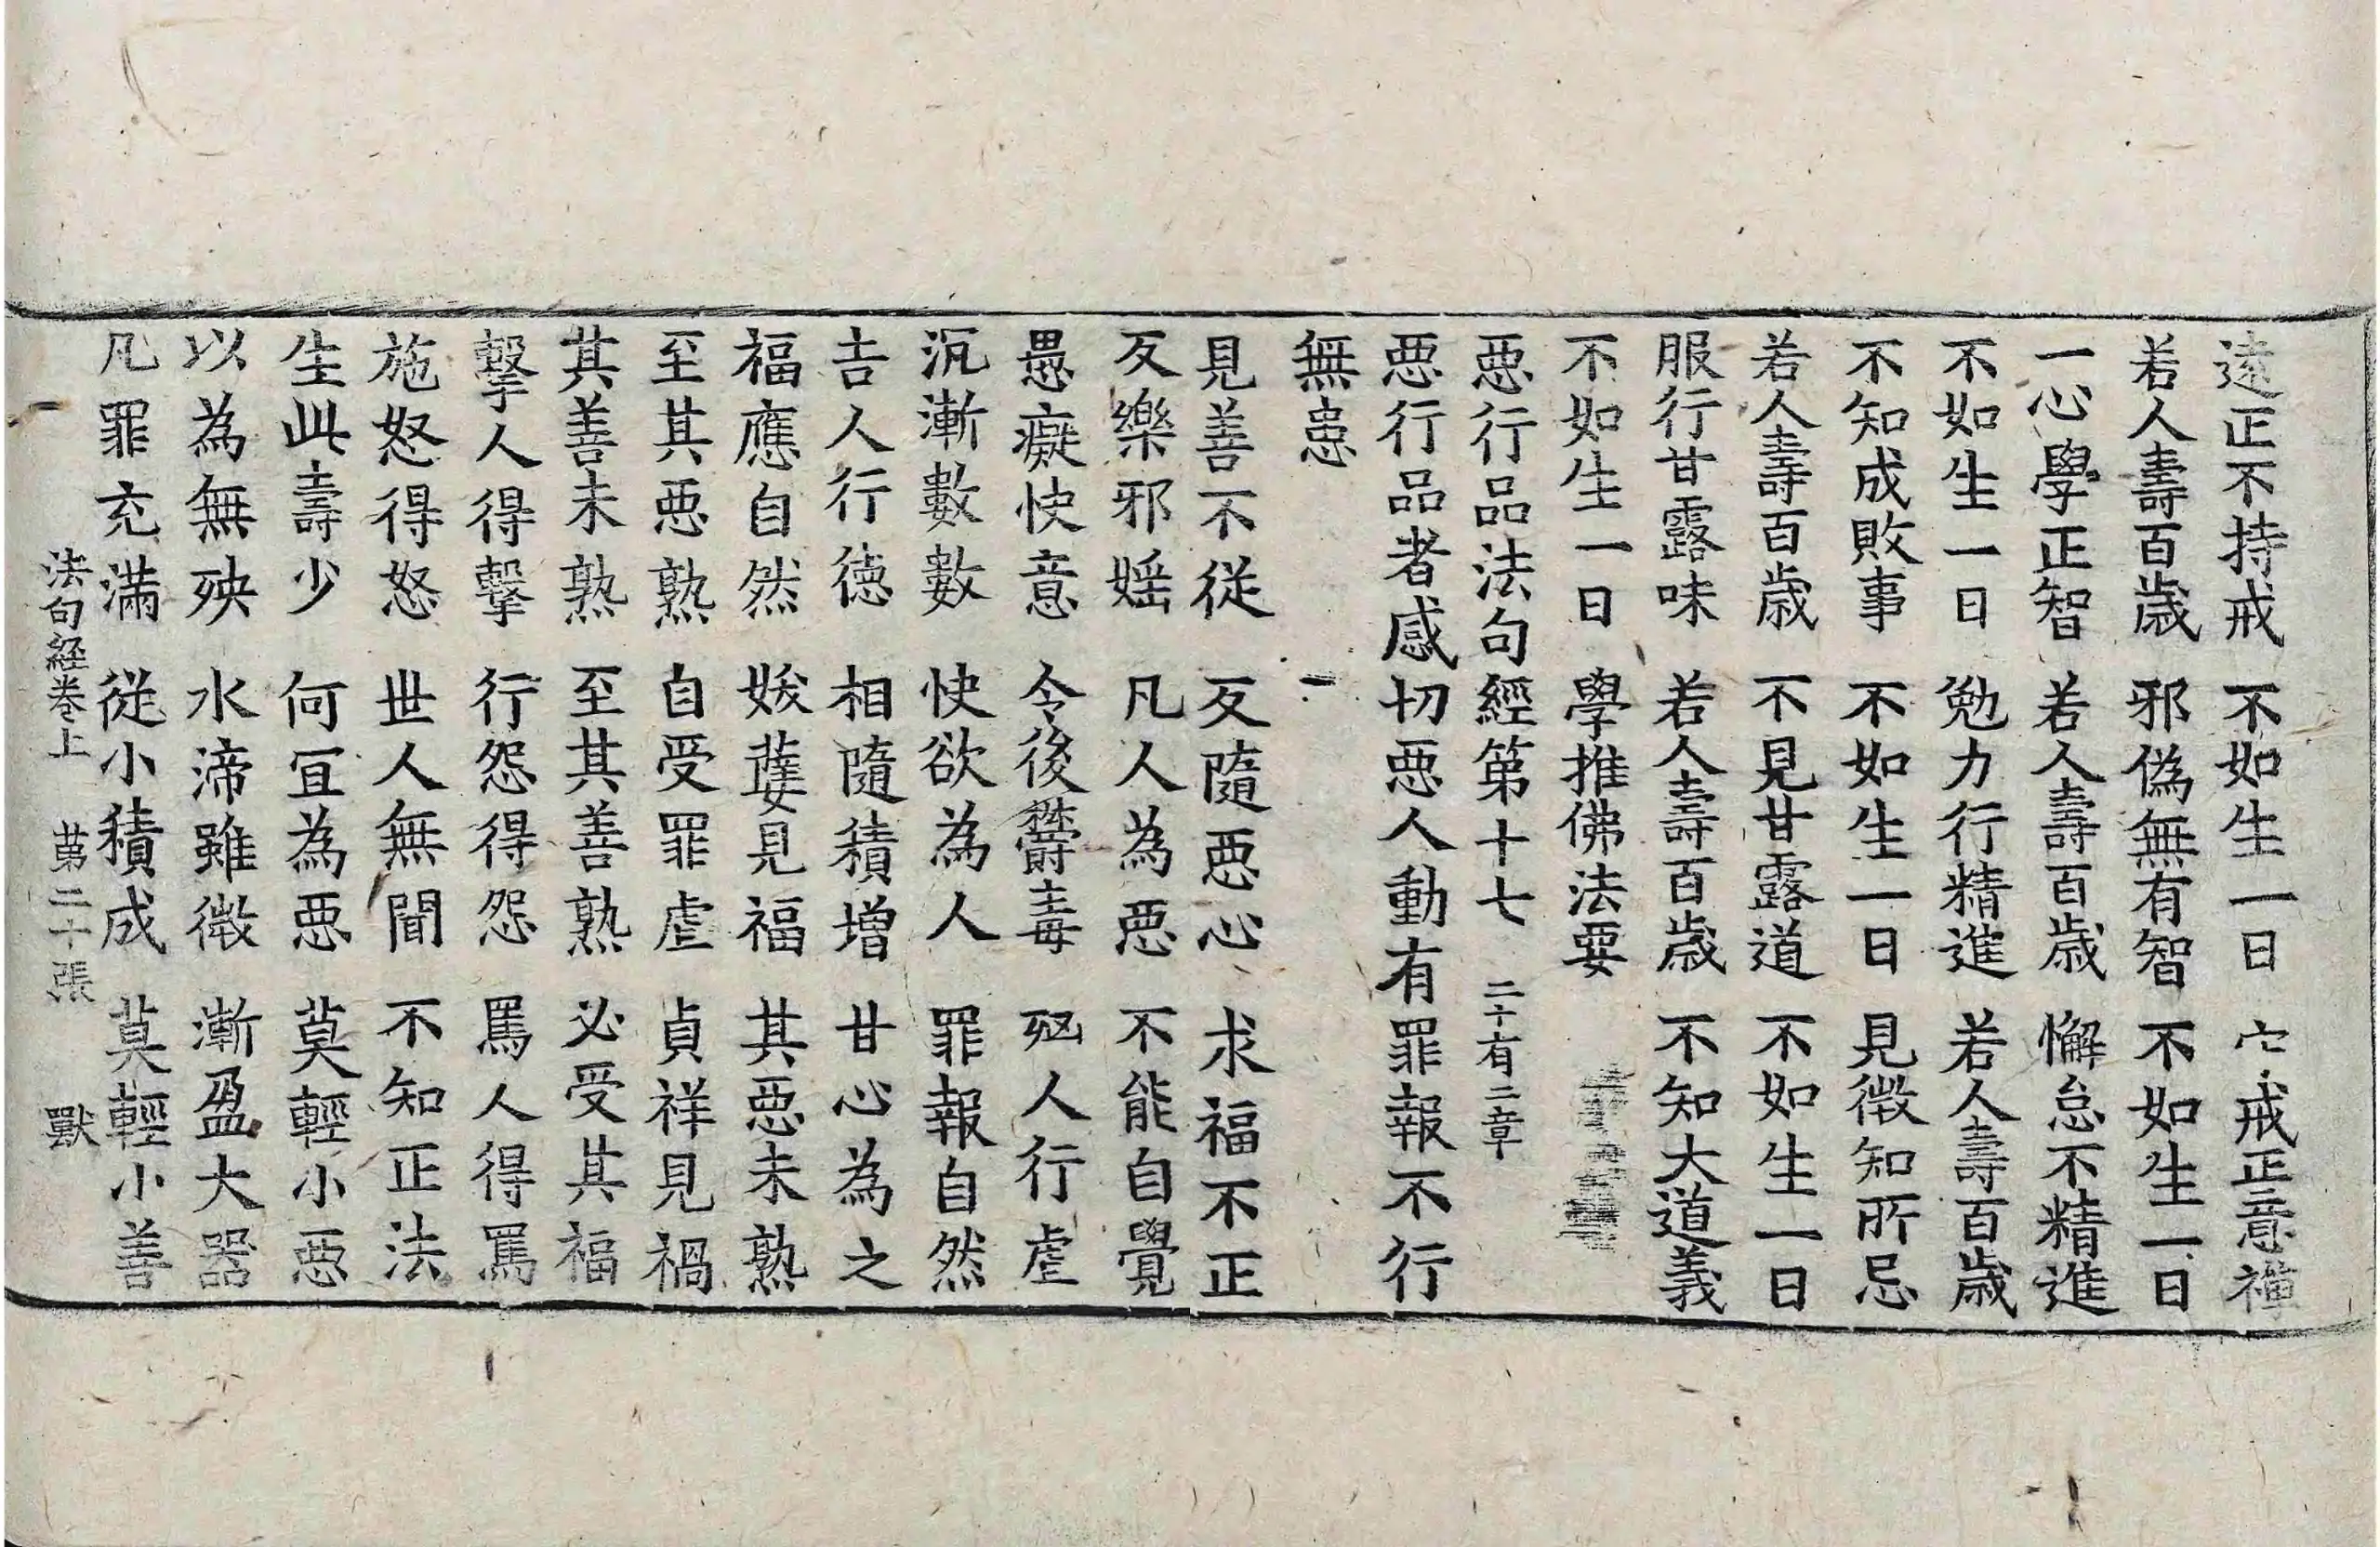 遠正不持戒　不如生一日　守戒正意禪
若人壽百歲　邪偽無有智　不如生一日
一心學正智　若人壽百歲　懈怠不精進
不如生一日　勉力行精進　若人壽百歲
不知成敗事　不如生一日　見微知所忌
若人壽百歲　不見甘露道　不如生一日
服行甘露味　若人壽百歲　不知大道義
不如生一日　學推佛法要
惡行品法句經第十七　二十有二章
惡行品者感切惡人動有罪報不行
無患
見善不從　反隨惡心　求福不正
反樂邪婬　凡人為惡　不能自覺
愚癡快意　令後欝毒　殃人行虐
沉漸數數　快欲為人　罪報自然
吉人行德　相隨積增　甘心為之
福應自然　妖孽見福　其惡未熟
至其惡熟　自受罪虐　貞祥見禍
其善未熟　至其善熟　必受其福
擊人得擊　行怨得怨　罵人得罵
施怒得怒　世人無聞　不知正法
生此壽少　何宜為惡　莫輕小惡
以為無殃　水渧雖微　漸盈大器
凡罪充滿　從小積成　莫輕小善
法句經卷上　第二十張　獸